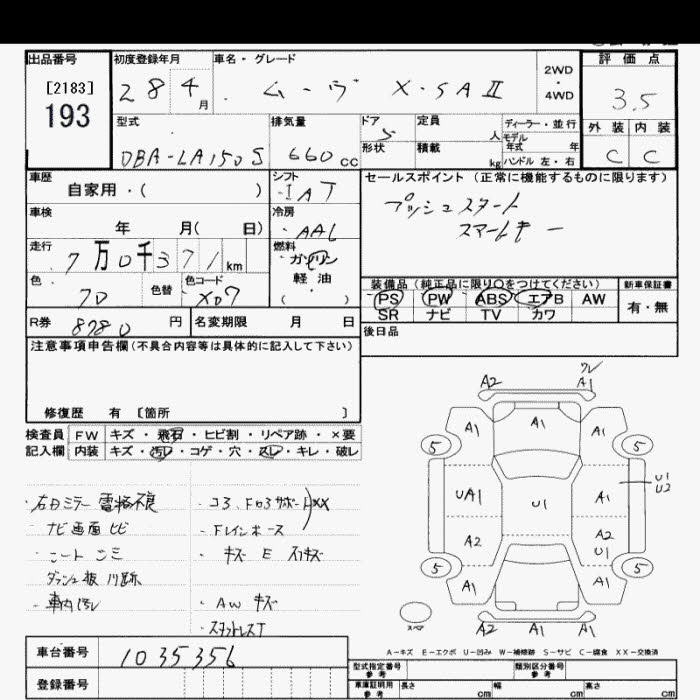 出品番号
[2183]
193
初度登録年月
28 4 月
車名・グレード
ムーヴ X・SAⅡ
2WD
・
4WD
評価点
3.5
外装 内装
C C
型式
DBA-LA150S
排気量
660 cc
ドア
5
形状
定員
人
積載
kg
ディーラー・並行
モデル
年式 年
ハンドル 左・右
車歴
自家用・( )
シフト
IAT
車検
年 月( 日)
冷房
AAC
走行
7万0千371 km
燃料
ガソリン
軽油
( )
色
色替
色コード
X07
R券
8780 円
名変期限 月 日
セールスポイント(正常に機能するものに限ります)
プッシュスタート
スマートキー
装備品(純正品に限り○をつけてください)
PS PW ABS エアB AW
SR ナビ TV カワ
新車保証書
有・無
後日品
注意事項申告欄(不具合内容等は具体的に記入して下さい)
修復歴 有 〔箇所 〕
検査員 FW キズ・飛石・ヒビ割・リペア跡・×要
記入欄 内装 キズ・汚レ・コゲ・穴・スレ・キレ・破レ
・右ドミラー電格不良
ナビ画面ヒビ
・シート シミ
ダッシュ板 パリ跡
・車内汚レ
・コ3、Fロ3サポートXX
・Fレインホース
・キズ E スリキズ
・AW キズ
・スタットレスT
A2 A1
A1 A1 A1
5 5
UA1 U1 A1
U1
U2
A2 A2
U1
5 5
A1 A1
スペア
A2 A1 A1
A-キズ E-エクボ U-凹み W-補修跡 S-サビ C-腐食 XX-交換済
車台番号
1035356
登録番号
型式指定番号
参考
類別区分番号
参考
車庫証明用
参考
長さ cm 幅 cm 高さ cm